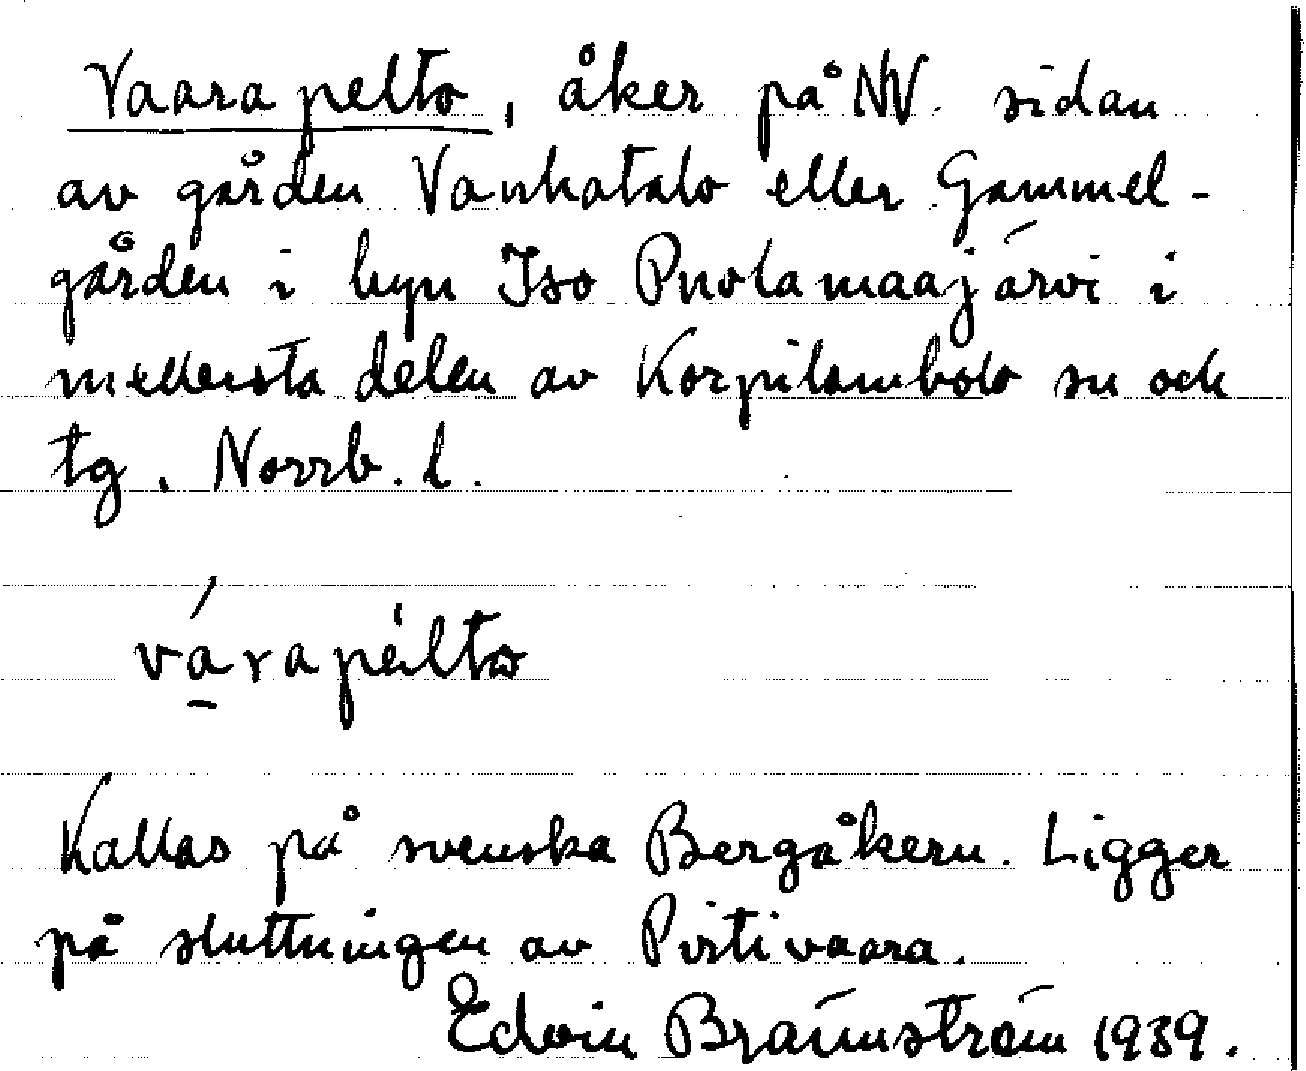 Vaarapelto, åker på NV. sidan
av gården Vanhatalo eller Gammel-
gården i byn Iso Puolamaajärvi i
mellersta delen av Korpilombolo sn och
tg. Norrb. l.
várapèlto
Kallas på svenska Bergåkern. Ligger
på sluttningen av Pirtivaara.
Edvin Brännström 1939.